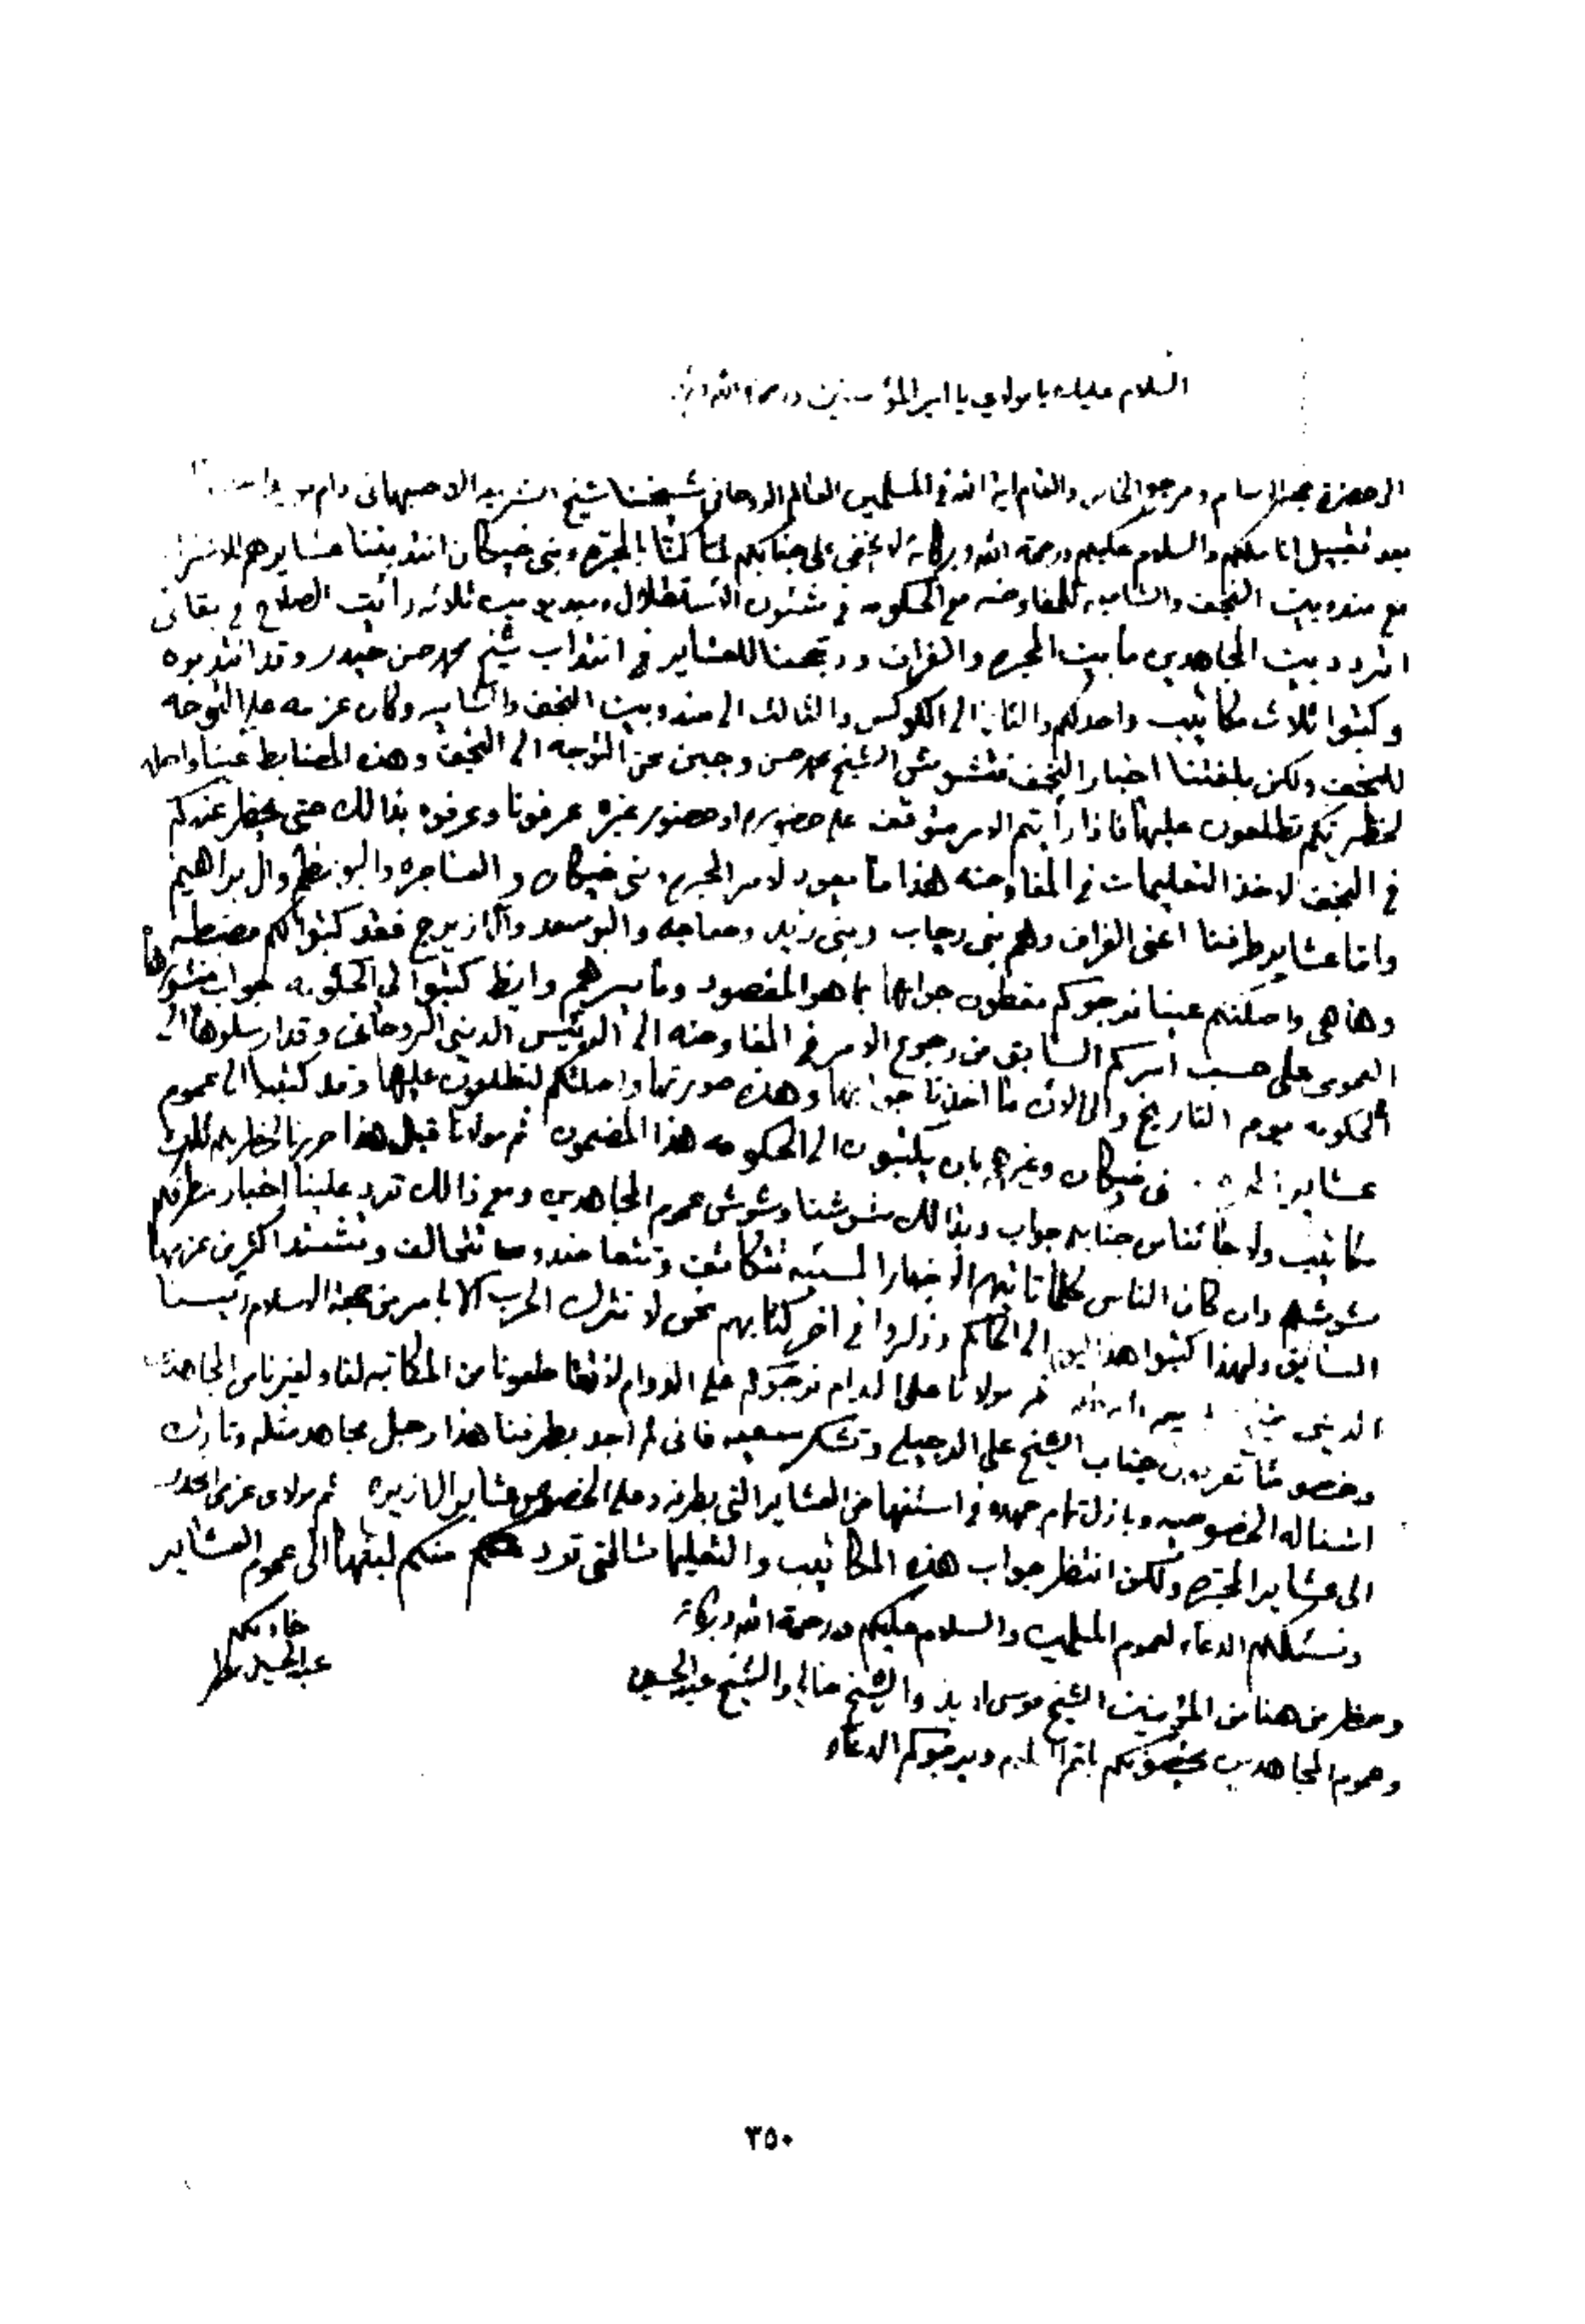 السلام عليك يا مولاي يا امير المؤمنين ورحمة الله
الى حضرة حجة الاسلام ومرجع الخاص والعام اية الله في المسلمين العالم الروحاني شيخنا شيخ الشريعه الاصبهاني دام
بعد تقبيل اناملكم والسلام عليكم ورحمة الله وبركاته لا يخفى على جنابكم لما كنا بالمجره وبني خيكان انتدبتنا عشايرهم
مع مندوبين النجف والشاميه للمفاوضه مع الحكومه في شئون الأستقلال وبعد يومين ثلاثه رأيت الصلاح في بقائي
اتردد بين المجاهدين ما بين المجره والفراف ورجحنا للعشاير في انتداب شيخ محمد حسن حيدر وقد انتدبوه
وكتبوا ثلاث مكاتيب واحد لكم والثاني الى الككوكس والثالث الى مندوبين النجف والشاميه وكان عزمه على التوجه
للنجف ولكن بلغتنا اخبار النجف فتشوش الشيخ محمد حسن وجبن عن التوجه الى النجف وهذه المضابط عينا واصله
لحظرتكم تطلعون عليها فاذا رأيتم الامر متوقف على حضوره او حضور غيره عرفونا وعرفوه بذالك حتى يحظر عندكم
في النجف لاخذ التعليمات في المفاوضه هذا ما يعود لامر المجره وبني خيكان والعساجره والبو شظم وال براهيم
واما عشاير طرفنا اعنى الفراف وهم بني ركاب وبني زيد وخفاجه والبو سعد وال ازيرج فقد كتبوا لكم مضبطه
وها هي واصلتكم عينا نرجوكم تعطون جوابها بما هو المقصود وما يسرهم وايظ كتبوا الى الحكومه بجواب منشورها
العمومي على حسب امركم السابق من رجوع الامر في المفاوضه الى الرئيس الديني الروحاني وقد ارسلوها الى
الحكومه يوم التاريخ والى الان ما اخذنا جوابها وهذه صورتها واصلتكم لتطلعون عليها وقد كتبنا الى عموم
عشاير المجره خيكان وغيرهم بان يكتبون الى الحكومه هذا المضمون ثم مولانا قبل هذا حررنا لحظرتكم ثلاث
مكاتيب ولا جائنا من جنابكم جواب وبذالك تشوشنا وشوش عموم المجاهدين ومع ذالك ترد علينا اخبار بطرفكم
مشوشه وان كان الناس كلما تاتيهم الاخبار السيئه تتكاتف وتتعاضد وتتحالف وتشتد اكثر من عزمها
السابق ولهذا كتبوا هذا الى الحاكم وذكروا في اخر كتابهم نحن لا نترك الحرب الا بامر من حجة الاسلام رئيسنا
الديني شيخ ثم مولانا على الدوام نرجوكم على الدوام لا تقطعونا من المكاتبه لنا ولغيرنا من المجاهدين
وخصوصا تعرفون جناب الشيخ علي الدجيلي وتشكر سعيه فاني لم اجد بطرفنا هذا رجل مجاهد مثله وتارك
اشغاله الخصوصيه وباذل تمام جهده في استنهاض العشاير التي بطرفه وعلى الخصوص عشاير ال ازيرج ثم مولاي عزمي
الى عشاير المجره ولكن انتظر جواب هذه المكاتيب والتعليمات التي ترد منكم لبثها الى عموم العشاير
ونسئلكم الدعاء لعموم المسلمين والسلام عليكم ورحمة الله وبركاته
خادمكم
عبد الحسين مطر
وحظر من هنا من المؤمنين الشيخ موسى والشيخ والشيخ عبد الحسين
وعموم المجاهدين يخصونكم باتم السلام ويرجوكم الدعاء
٣٥٠